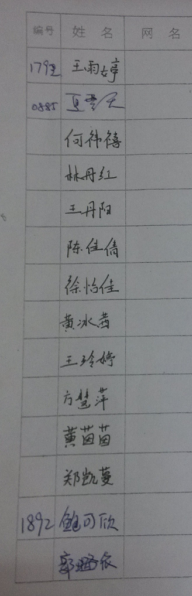 编号 姓名 网名
1792 王雨婷
0885 夏雪天
何祎禧
林丹红
王丹阳
陈佳倩
徐怡佳
黄冰茜
王玲婷
方慧萍
黄茵茵
郑凯蔓
1892 鲍可欣